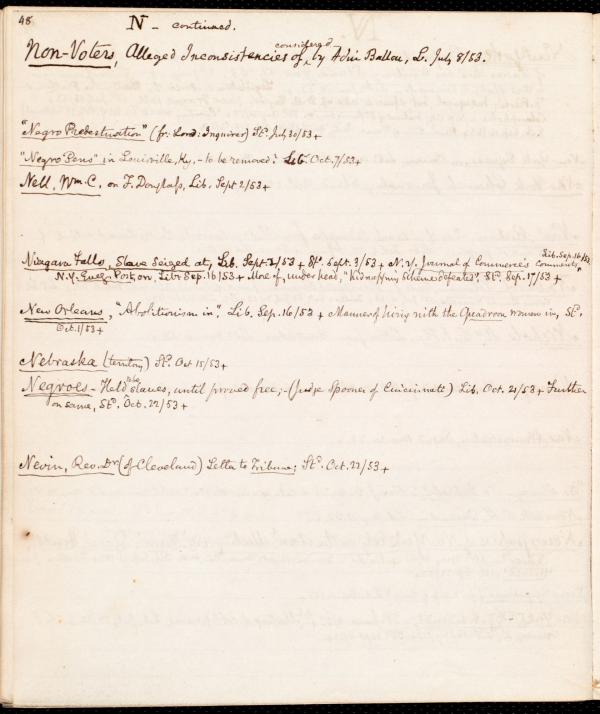 48.
N - continued.
Non-Voters, Alleged Inconsistencies of, considered by Adin Ballou, L. July 8/53.
"Negro Predestination" (fr: Lond: Inquirer) Std. July 30/53 +
"Negro Pens" in Louisville, Ky, - to be removed? Lib. Oct. 7/53 +
Nell, Wm. C. on F. Douglass, Lib. Sept 2/53 +
Niagara Falls, Slave seized at, Lib. Sept. 2/53 + Std. Sept. 3/53 + N.Y. Journal of Commerce's comments, Lib. Sep. 16/53
N.Y. Eveg. Post, on, Lib. Sep. 16/53 + More of, under head, "Kidnapping Scheme defeated", Std. Sep. 17/53 +
New Orleans, "Abolitionism in". Lib. Sep. 16/53 + Manner of living with the Quadroon women in, Std.
Oct. 1/53 +
Nebraska (territory) Std. Oct 15/53 +
Negroes - Held to be slaves, until proved free; - (Judge Spooner of Cincinnati) Lib. Oct. 21/53 + Further
on same, Std. Oct. 22/53 +
Nevin, Rev. Dr (of Cleveland) Letter to Tribune; Std. Oct. 22/53 +